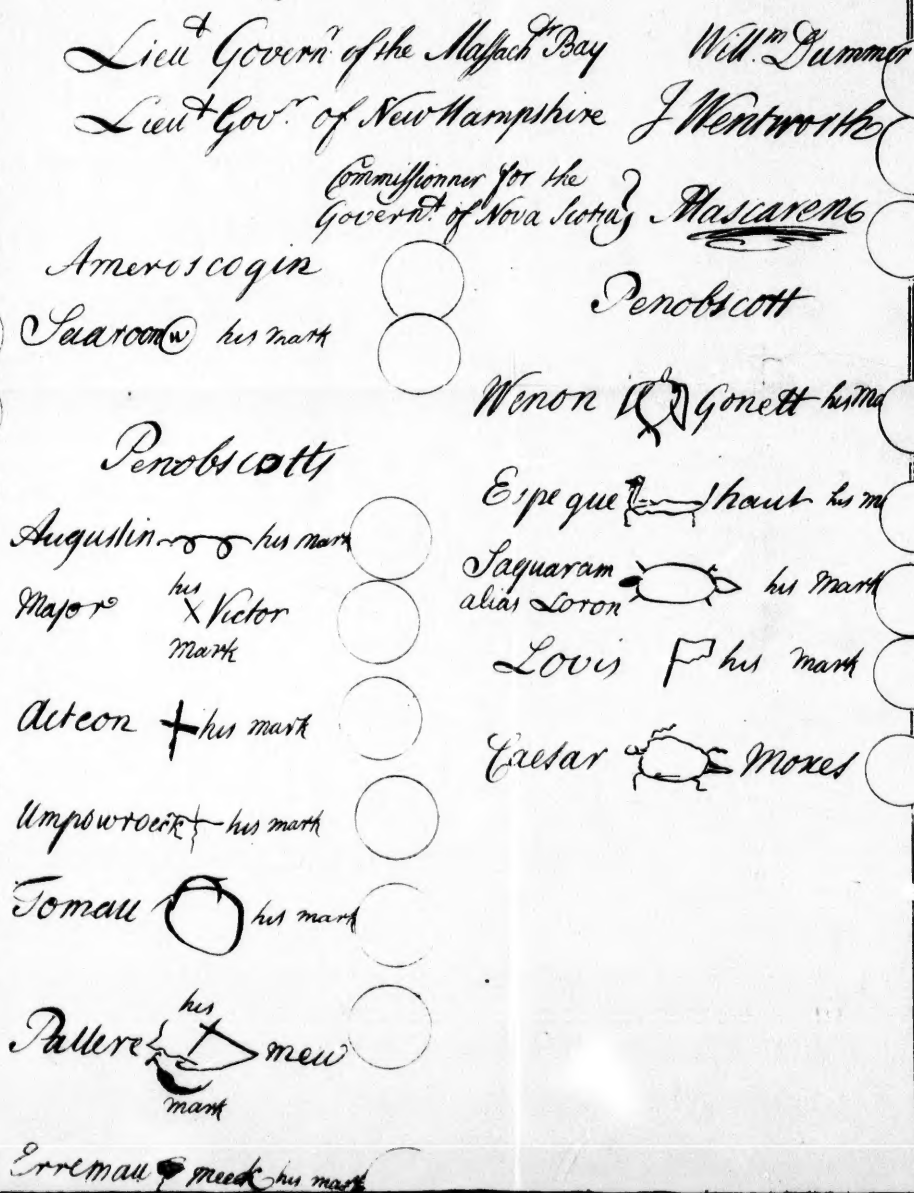 Lieut Governr of the Massachts Bay Willm Dummer
Lieut Govr of New Hampshire J Wentworth
Commissionner for the
Governt of Nova Scotia Mascarene
Ameroscogin
Saaroon W his mark
Penobscotts
Augustin his mark
Major his X Victor
mark
Acteon his mark
Umpowroeik his mark
Tomau his mark
his
Pallere meu
mark
Erremau meek his mark
Penobscott
Wenon Gonett his ma
Espegue haut his m
Saguaram
alias Loron his mark
Lovis his mark
Caesar Moxes